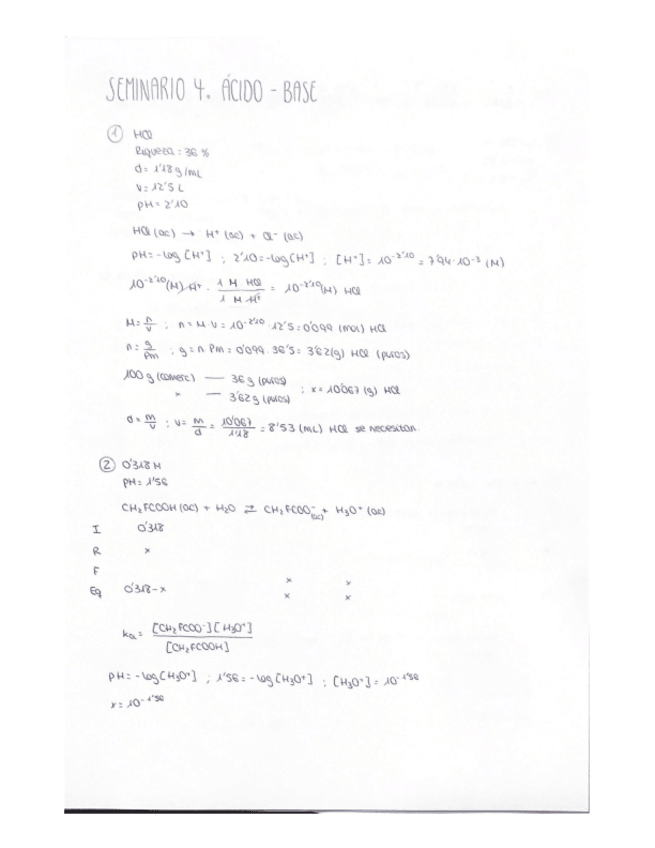 SEMINARIO 4. ÁCIDO - BASE
① HCl
Riqueza: 36 %
d= 1'18 g/mL
V= 12'5 L
pH= 2'10
HCl (ac) → H⁺ (ac) + Cl⁻ (ac)
pH= -log [H⁺] ; 2'10= -log[H⁺] ; [H⁺]= 10^-2'10 = 7'94·10^-3 (M)
10^-2'10 (M) H⁺ · 1 M HCl / 1 M H⁺ = 10^-2'10 (M) HCl
M= n/V ; n= M·V= 10^-2'10 · 12'5= 0'099 (mol) HCl
n= g/Pm ; g= n·Pm= 0'099 · 36'5= 3'62(g) HCl (puros)
100 g (comerc) — 36 g (puros)
x — 3'62 g (puros) ; x= 10'067 (g) HCl
d= m/V ; V= m/d = 10'067/1'18 = 8'53 (mL) HCl se necesitan.
② 0'318 M
pH= 1'56
CH₂FCOOH (ac) + H₂O ⇄ CH₂FCOO⁻(ac) + H₃O⁺ (ac)
I 0'318
R x
F x x
Eq 0'318-x x x
Ka= [CH₂FCOO⁻][H₃O⁺] / [CH₂FCOOH]
pH= -log[H₃O⁺] ; 1'56= -log [H₃O⁺] ; [H₃O⁺]= 10^-1'56
x= 10^-1'56